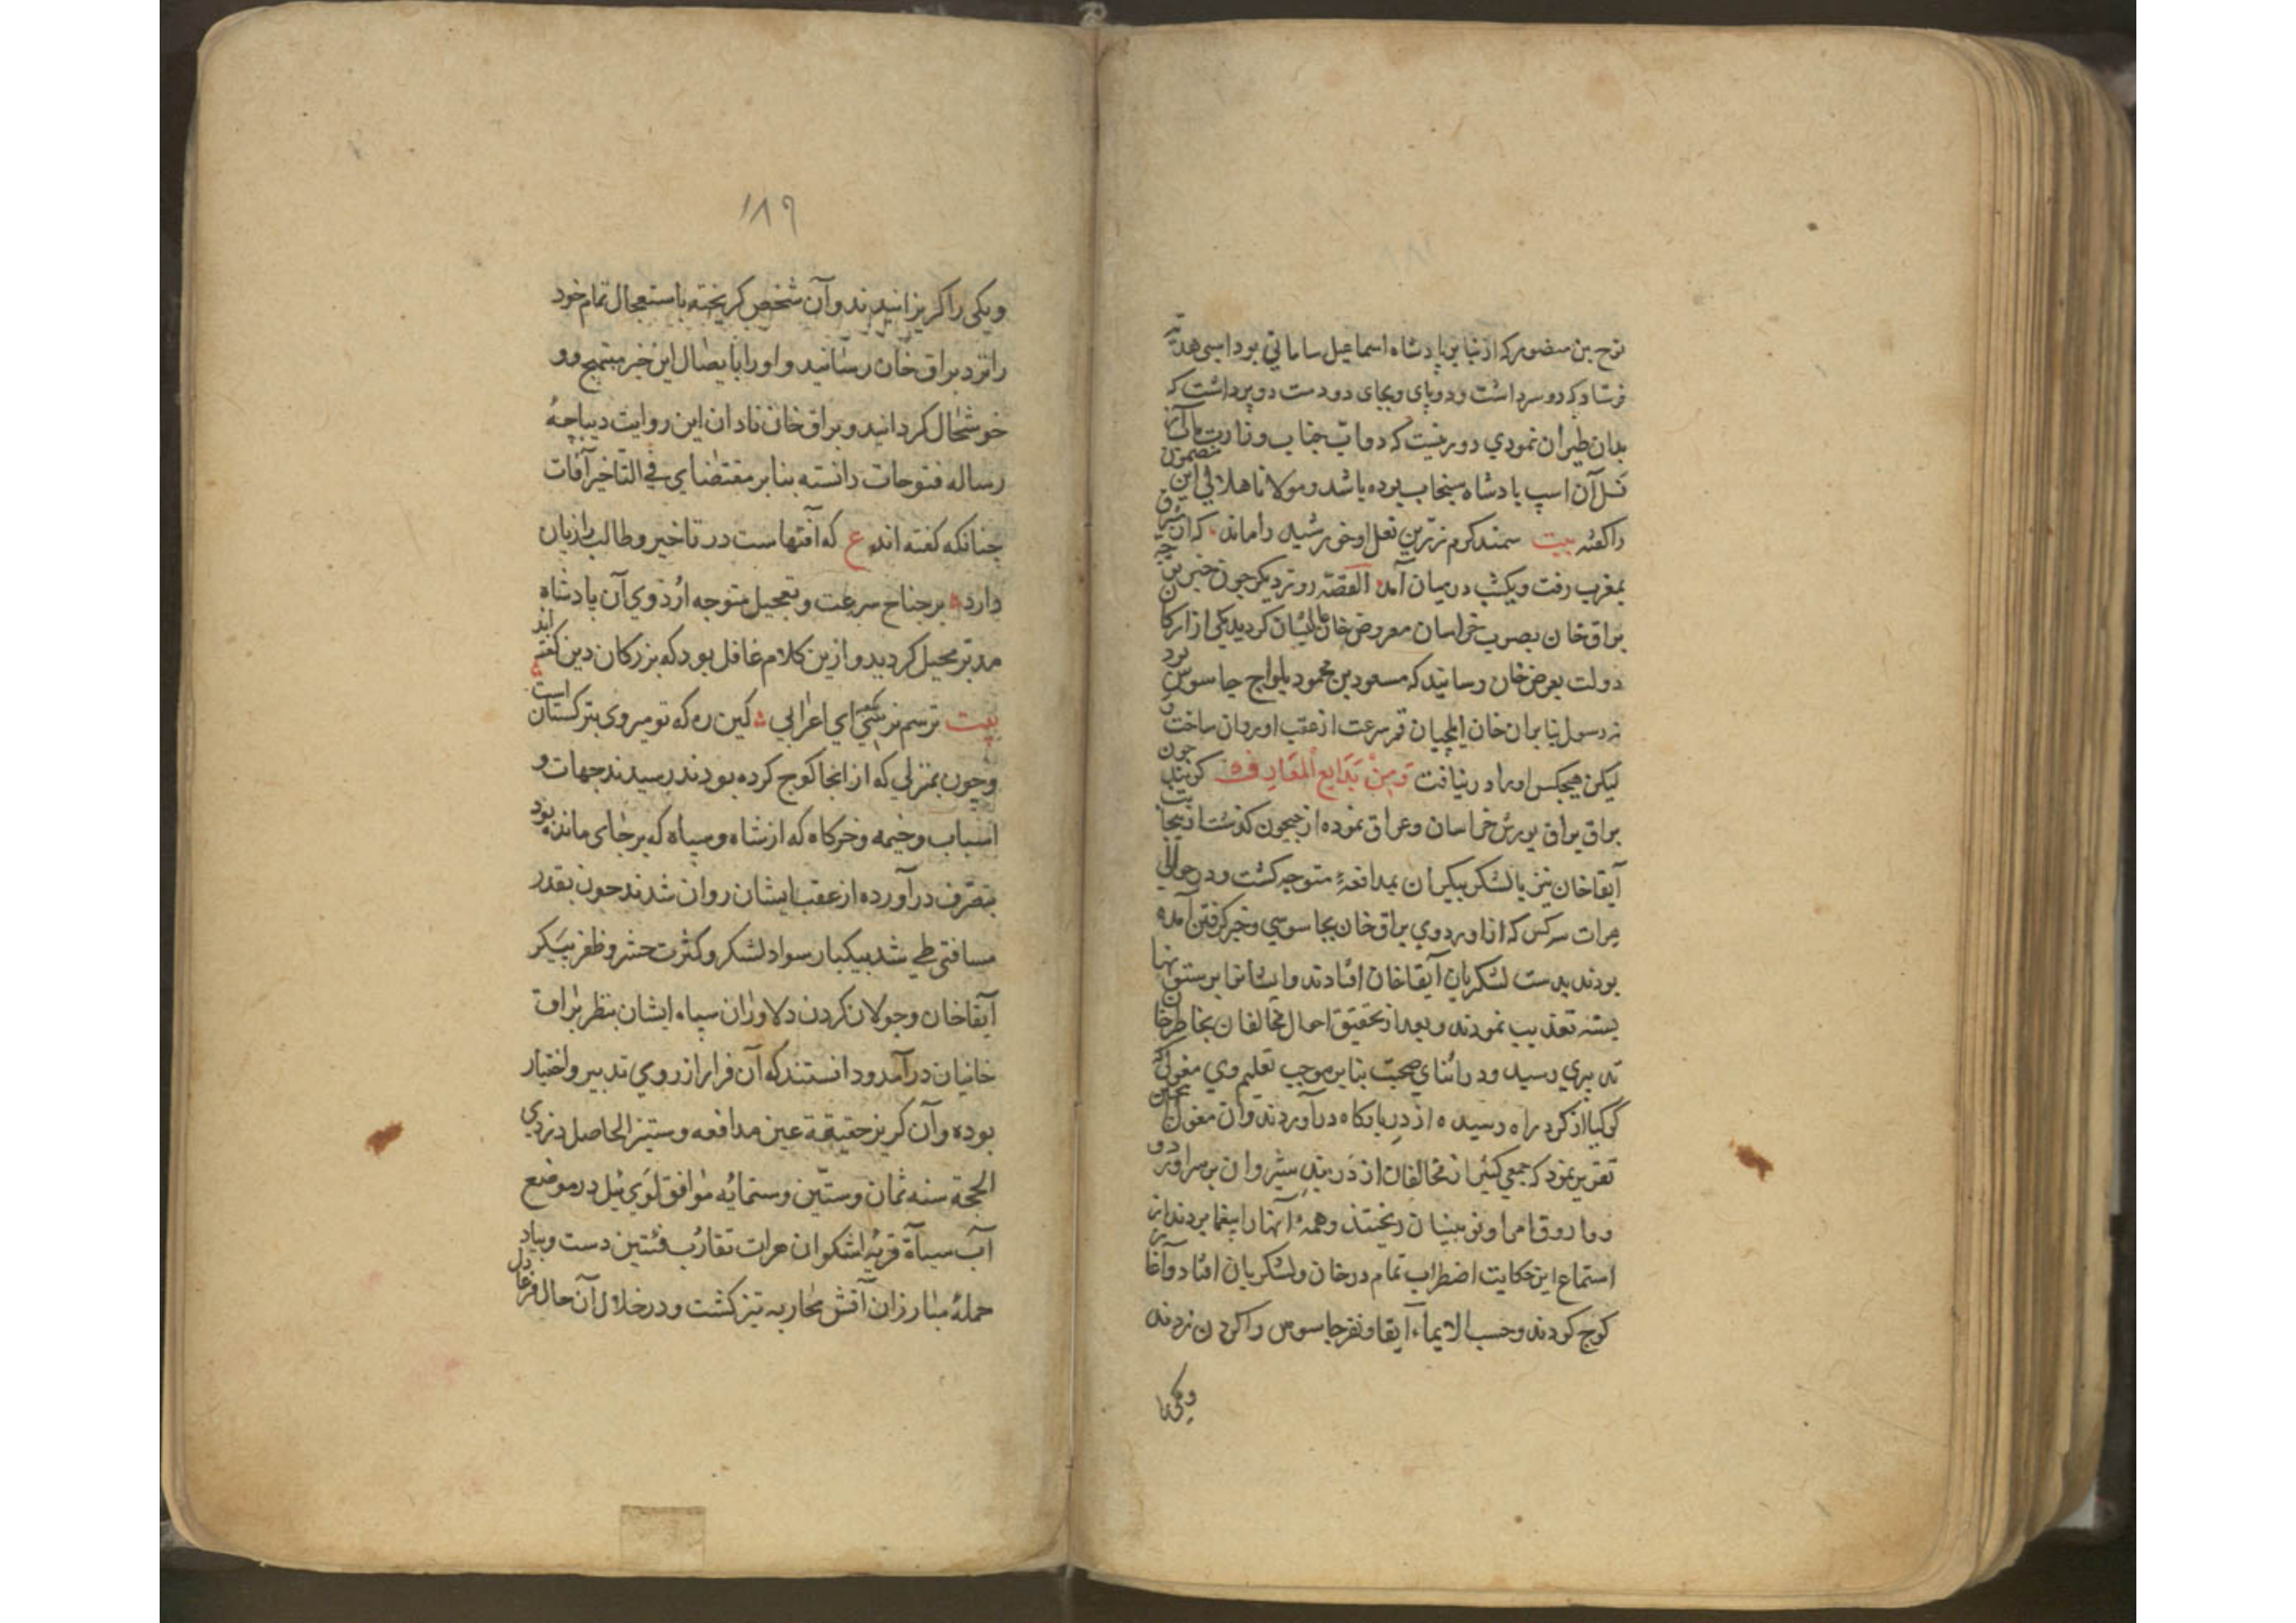 نوح بن منصور که از نبایر پادشاه اسماعیل سامانی بود اسبی هدیه
فرستاد که دو سر داشت و دو پای و بجای دو دست دو پر داشت که
بدان طیران نمودی دور نیست که دواب جناب وزارت مآب از
نسل آن اسپ پادشاه سنجاب بوده باشد و مولانا هلالی این مضمون
را گفته بیت سمند کرم زرین نعل او خورشید را ماند که از مشرق
بمغرب رفت و یکشب در میان آمد القصه روز دیگر چون خبر رفتن
براق خان بصوب خراسان معروض خان عالیشان کردید یکی از ارکان
دولت بعرض خان رسانید که مسعود بن محمود یلواج جاسوس بود
نه رسول بنا بران خان ایلچیان قمر سرعت از عقب او روان ساخت و
لیکن هیچکس او را در نیافت و من بدایع المعارف کویند چون
براق براق یورش خراسان و عراق نموده از جیحون کذشت ازینجانب
آبقا خان نیز با لشکر بیکران بمدافعهٔ متوجه کشت و در حوالی
هرات سه کس که از اوردوی براق خان بجاسوسی و خبر کرفتن آمده
بودند بدست لشکریان آبقا خان افتادند و ایشانرا بر ستونها
بسته تعذیب نمودند و بعد از تحقیق احوال مخالفان بخاطر خان
تدبیری رسید و در اثنای صحبت بنا بر موجب تعلیم وی مغولی که
کوکیا از کرد راه رسیده از در بارکاه در آوردند و آن مغول
تقریر نمود که جمعی کثیر از مخالفان از دربند شیروان بر سر اوردو
و ما روق امرا و نوینیان ریختند و همهٔ آنها را بیغما بردند از
استماع این حکایت اضطراب تمام در خان و لشکریان افتاد و آغاز
کوچ کودند و حسب الایماء آبقا دو نفر جاسوس را کردن زدند
ویکی را
۱۸۹
ویکی را کریزانیدند و آن شخص کریخته باستعجال تمام خود
را نزد براق خان رسانید و او را بایصال این خبر مبتهج و
خوشحال کردانید و براق خان نادان این روایت دیباچهٔ
رساله فتوحات دانسته بنا بر مقتضنای فی التاخیر آفات
چنانکه کفته اند ع که آفتهاست در تاخیر و طالب را زیان
دارد بر جناح سرعت و تعجیل متوجه اردوی آن پادشاه
مدبر محیل کردید و ازین کلام غافل بود که بزرکان دین کفته اند
بیت ترسم نرسی بکعبه ای اعرابی کین ره که تو میروی بترکستان است
و چون بمنزلی که از انجا کوچ کرده بودند رسیدند جهات و
اسباب و خیمه و خرکاه که از شاه و سپاه که بر جای مانده بود
بتصرف در آورده از عقب ایشان روان شدند چون بقدر
مسافتی طی شد بیکبار سواد لشکر و کثرت حشر و ظفر پیکر
آبقا خان و جولان کردن دلاوران سپاه ایشان بنظر براق
خانیان در آمد و دانستند که آن فرار از روی تدبیر و اختیار
بوده و آن کریز حقیقة عین مدافعه و ستیز الحاصل در ذی
الحجة سنه ثمان و ستین و ستمایه موافق لوی ئیل در موضع
آب سیاه قریه اشکوان هرات تقارب فئتین دست و بیاد
حملهٔ مبارزان آتش محاربه تیز کشت و در خلال آن حال